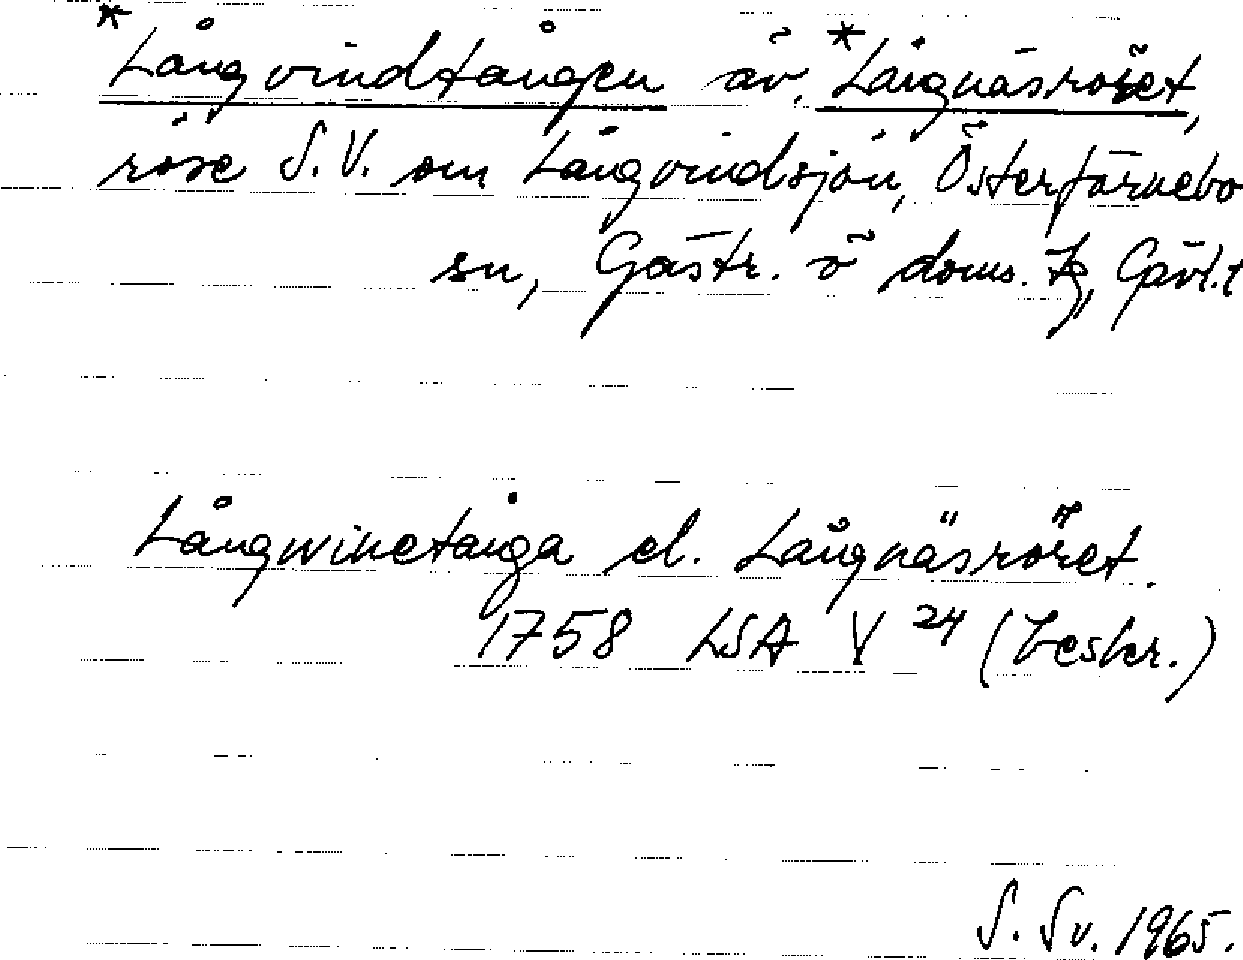 *Långvindtången äv. *Långnäsröset,
röse S.V. om Långvindsjön, Österfärnebo
sn, Gästr. ö doms. tg, Gävl.l
Långwinetånga el. Långnäsröret.
1758 LSA V 24 (beskr.)
S. Sv. 1965.